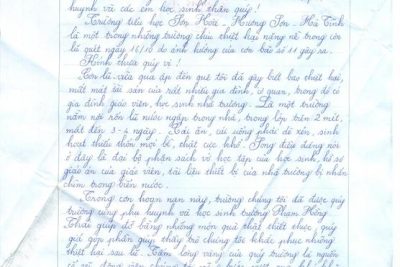 huynh và các em học sinh thân quý!
Trường tiểu học Sơn Hoà - Hương Sơn - Hà Tĩnh
là một trong những trường chịu thiệt hại nặng nề trong cơn
lũ quét ngày 16/10 do ảnh hưởng của cơn bão số 11 gây ra.
Kính thưa quý vị!
Cơn lũ vừa qua ập đến quê tôi đã gây biết bao thiệt hại,
mất mát tài sản của rất nhiều gia đình, cơ quan, trong đó có
gia đình giáo viên, học sinh nhà trường. Là một trường
nằm nơi rốn lũ nước ngập trong nhà, trong lớp trên 2 mét,
mất đến 3-4 ngày. Cái ăn, cái uống phải dè xẻn, sinh
hoạt thiếu thốn mọi bề, chật cực khổ. Song điều đáng nói
ở đây là đại bộ phận sách vở học tập của học sinh, hồ sơ
giáo án của giáo viên, tài liệu thiết bị của nhà trường bị nhấn
chìm trong biển nước.
Trong cơn hoạn nạn này, trường chúng tôi đã được quý
trường cùng phụ huynh và học sinh trường Phạm Hồng
Thái giúp đỡ bằng những món quà thật thiết thực, quý
giá góp phần giúp thầy trò chúng tôi khắc phục những
thiệt hại sau lũ. Tấm lòng vàng của quý trường là nguồn